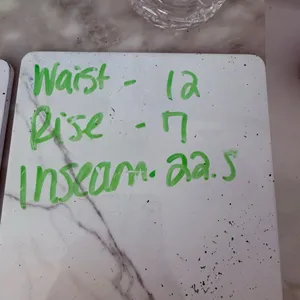 Waist - 12
Rise - 7
Inseam. 22.5